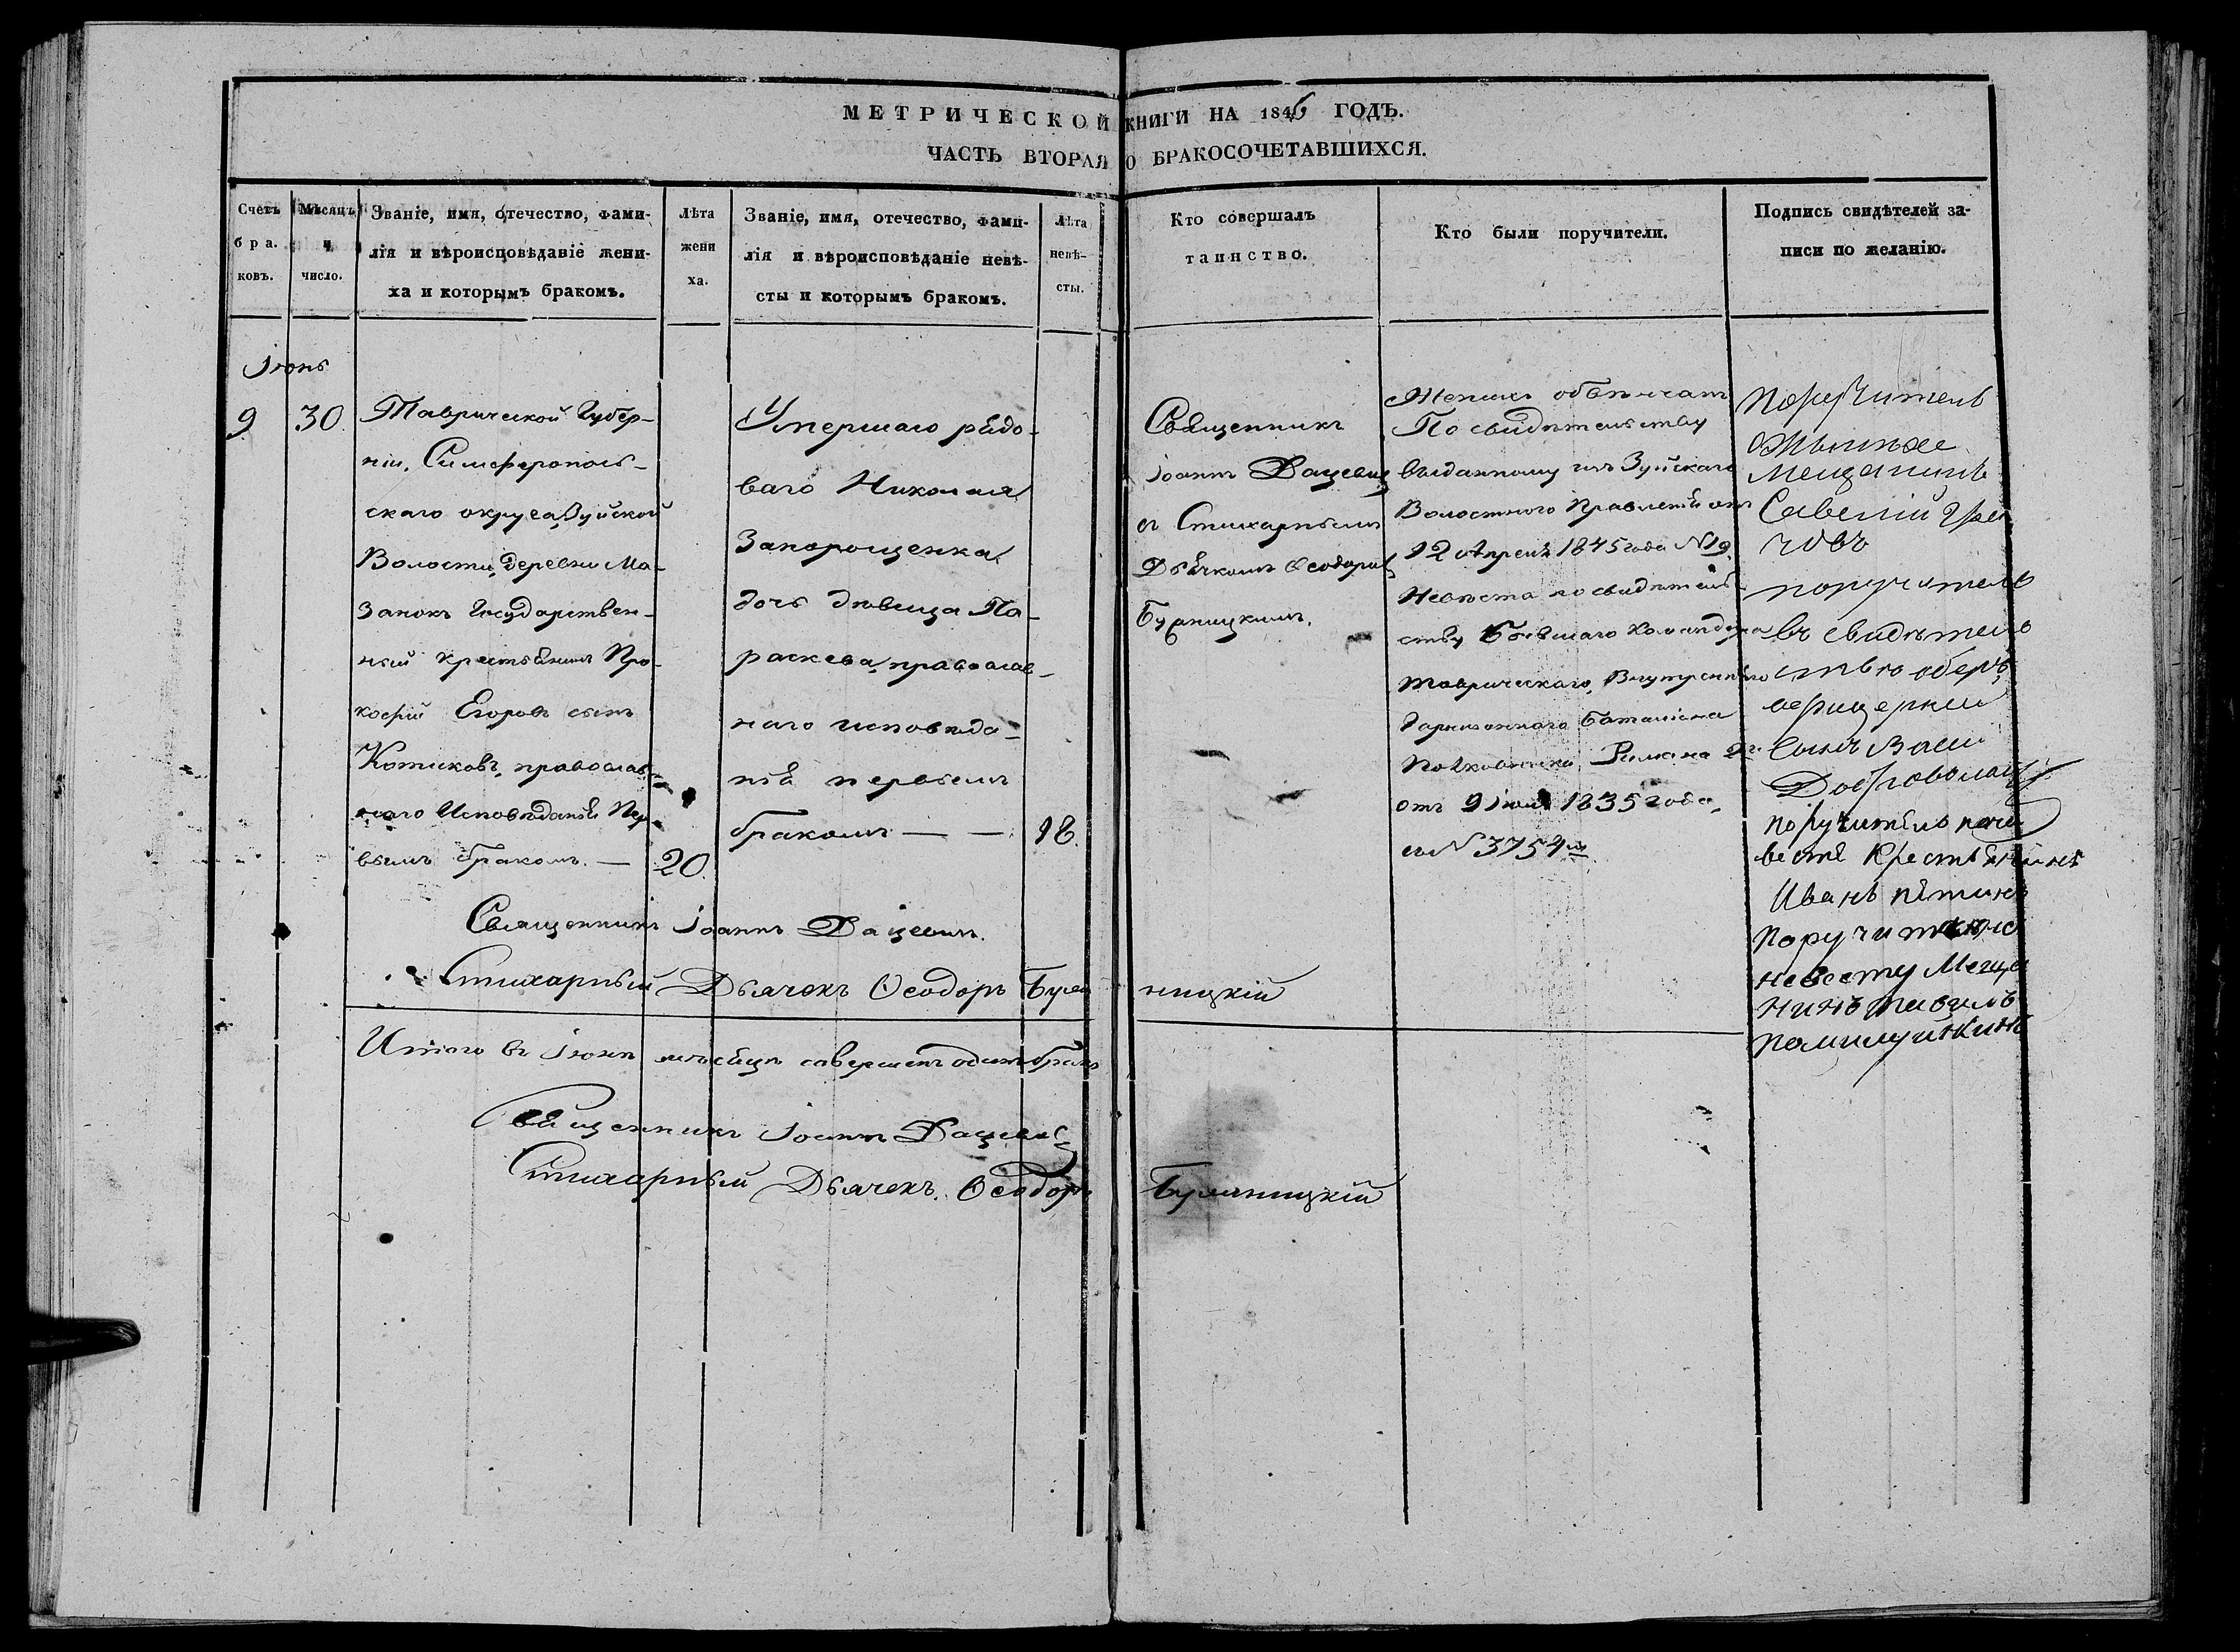 МЕТРИЧЕСКОЙ КНИГИ НА 1846 ГОДЪ.
ЧАСТЬ ВТОРАЯ О БРАКОСОЧЕТАВШИХСЯ.
Счетъ
бра.
ковъ.
Мѣсяцъ
и
число.
Званіе, имя, отечество, фами-
лія и вѣроисповѣданіе жени-
ха и которымъ бракомъ.
Лѣта
жени
ха.
Званіе, имя, отечество, фами-
лія и вѣроисповѣданіе невѣ-
сты и которымъ бракомъ.
Лѣта
невѣ-
сты.
Кто совершалъ
таинство.
Кто были поручители.
Подпись свидѣтелей за-
писи по желанію.
Іюнь
9
30
Таврической Губер-
ніи, Симферополь-
скаго округа, Зуйской
Волости, деревни Ма-
занокъ Государствен-
ный крестьянинъ Про-
кофій Егоровъ сынъ
Котиковъ, православ-
наго Исповѣданія Пер-
вымъ бракомъ. —
20.
Умершаго рядо-
ваго Николая
Запорощенка
дочь дѣвица Па-
раскева, православ-
наго исповѣда-
нія первымъ
бракомъ — —
18.
Священникъ
Іоаннъ Дацевичъ
съ Стихарнымъ
Дьячкомъ Ѳеодоромъ
Женихъ обвѣнчанъ
По свидѣтельству
выданному изъ Зуйскаго
Волостного Правленія отъ
12 Апрѣля 1845 года № 19.
Невѣста по свидѣтель-
ству бывшаго Командира
Таврическаго Внутренняго
Гарнизоннаго баталіона
Полковника 2го
отъ 9 1835 года,
за № 3754м
Поручитель
Мещанинъ
Савелій
поручитель
въ свидѣтель
ствѣ оберъ
офицерскій
сынъ
поручитель по не
весте Крестьянинъ
Иванъ
Поручитель по
невесту Меща
нинъ
Священникъ Іоаннъ Дацевичъ.
Стихарный Дьячекъ Ѳеодоръ Буляницкій
Итого въ Іюнѣ мѣсяцѣ совершенъ одинъ бракъ
Священникъ Іоаннъ Дацевичъ
Стихарный Дьячекъ. Ѳеодоръ Буляницкій